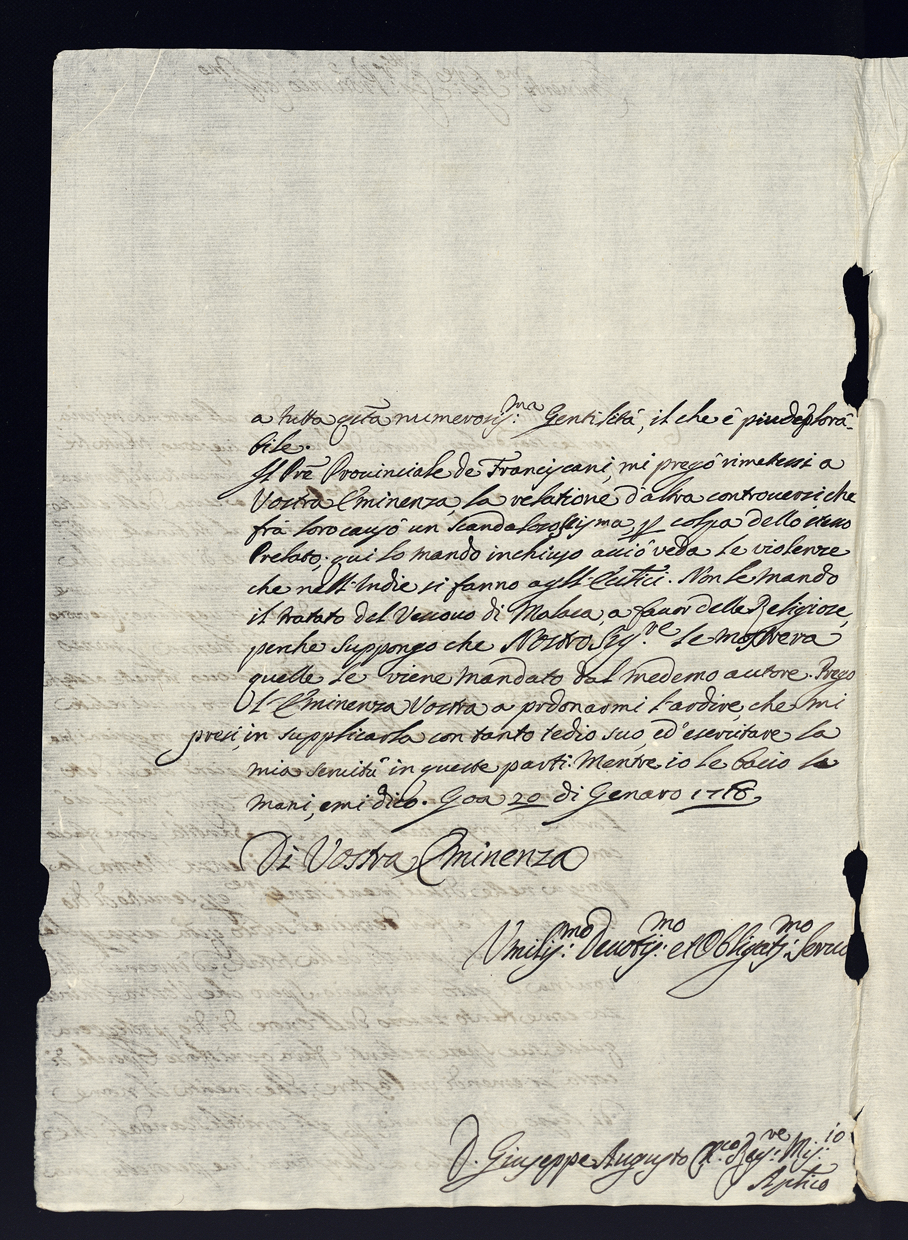 a tutta q̃ta numerosiss:ma Gentilità, il che è piu deplorà-
bile.
Il Pr̃e Provinciale de Franciscani, mi pregò rimettessi a
Vostra Eminenza, la relatione d'altra controversi che
frà loro causò un scandaloso scisma, p colpa dello
Prelato, qui lo mando inchiuso acciò veda le violenze
che nell'Indie si fanno agl'. Non le mando
il tratato del Vescovo di Malaca, a favor delle Religiose,
perche suppongo che Nostro Sig:re le mostrerà
quelle le viene mandato dal medemo autore. Prego
l'Eminenza Vostra a pdonarmi l'ardire, che mi
presi, in supplicarla con tanto tedio suo, ed'esercitare la
mia servitù in queste parti: Mentre io le bacio le
mani, e mi dico. Goa 20 di Genaro 1718.
Di Vostra Eminenza
Vmiliss:mo Devotiss:mo et Obligatiss:mo Servo
D. Giuseppe Augusto Ch:co Reg:re Miss:io
Aptico